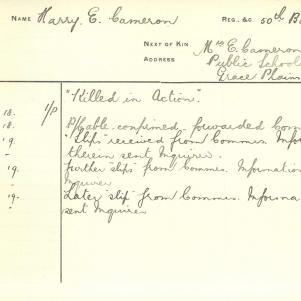 NAME Harry E. Cameron REG. &C. 50th Ba
NEXT OF KIN Mrs E. Cameron
ADDRESS Public School
Grace Plains
"Killed in Action".
18. 1/P
18. P/Cable confirmed forwarded Com
9 "Slip" received from Commrs. Infor
therein sent Inquirer.
19. further "slips" from Commrs. Information
Inquirer
19. Later "slip" from Commrs. Informa
sent Inquirer